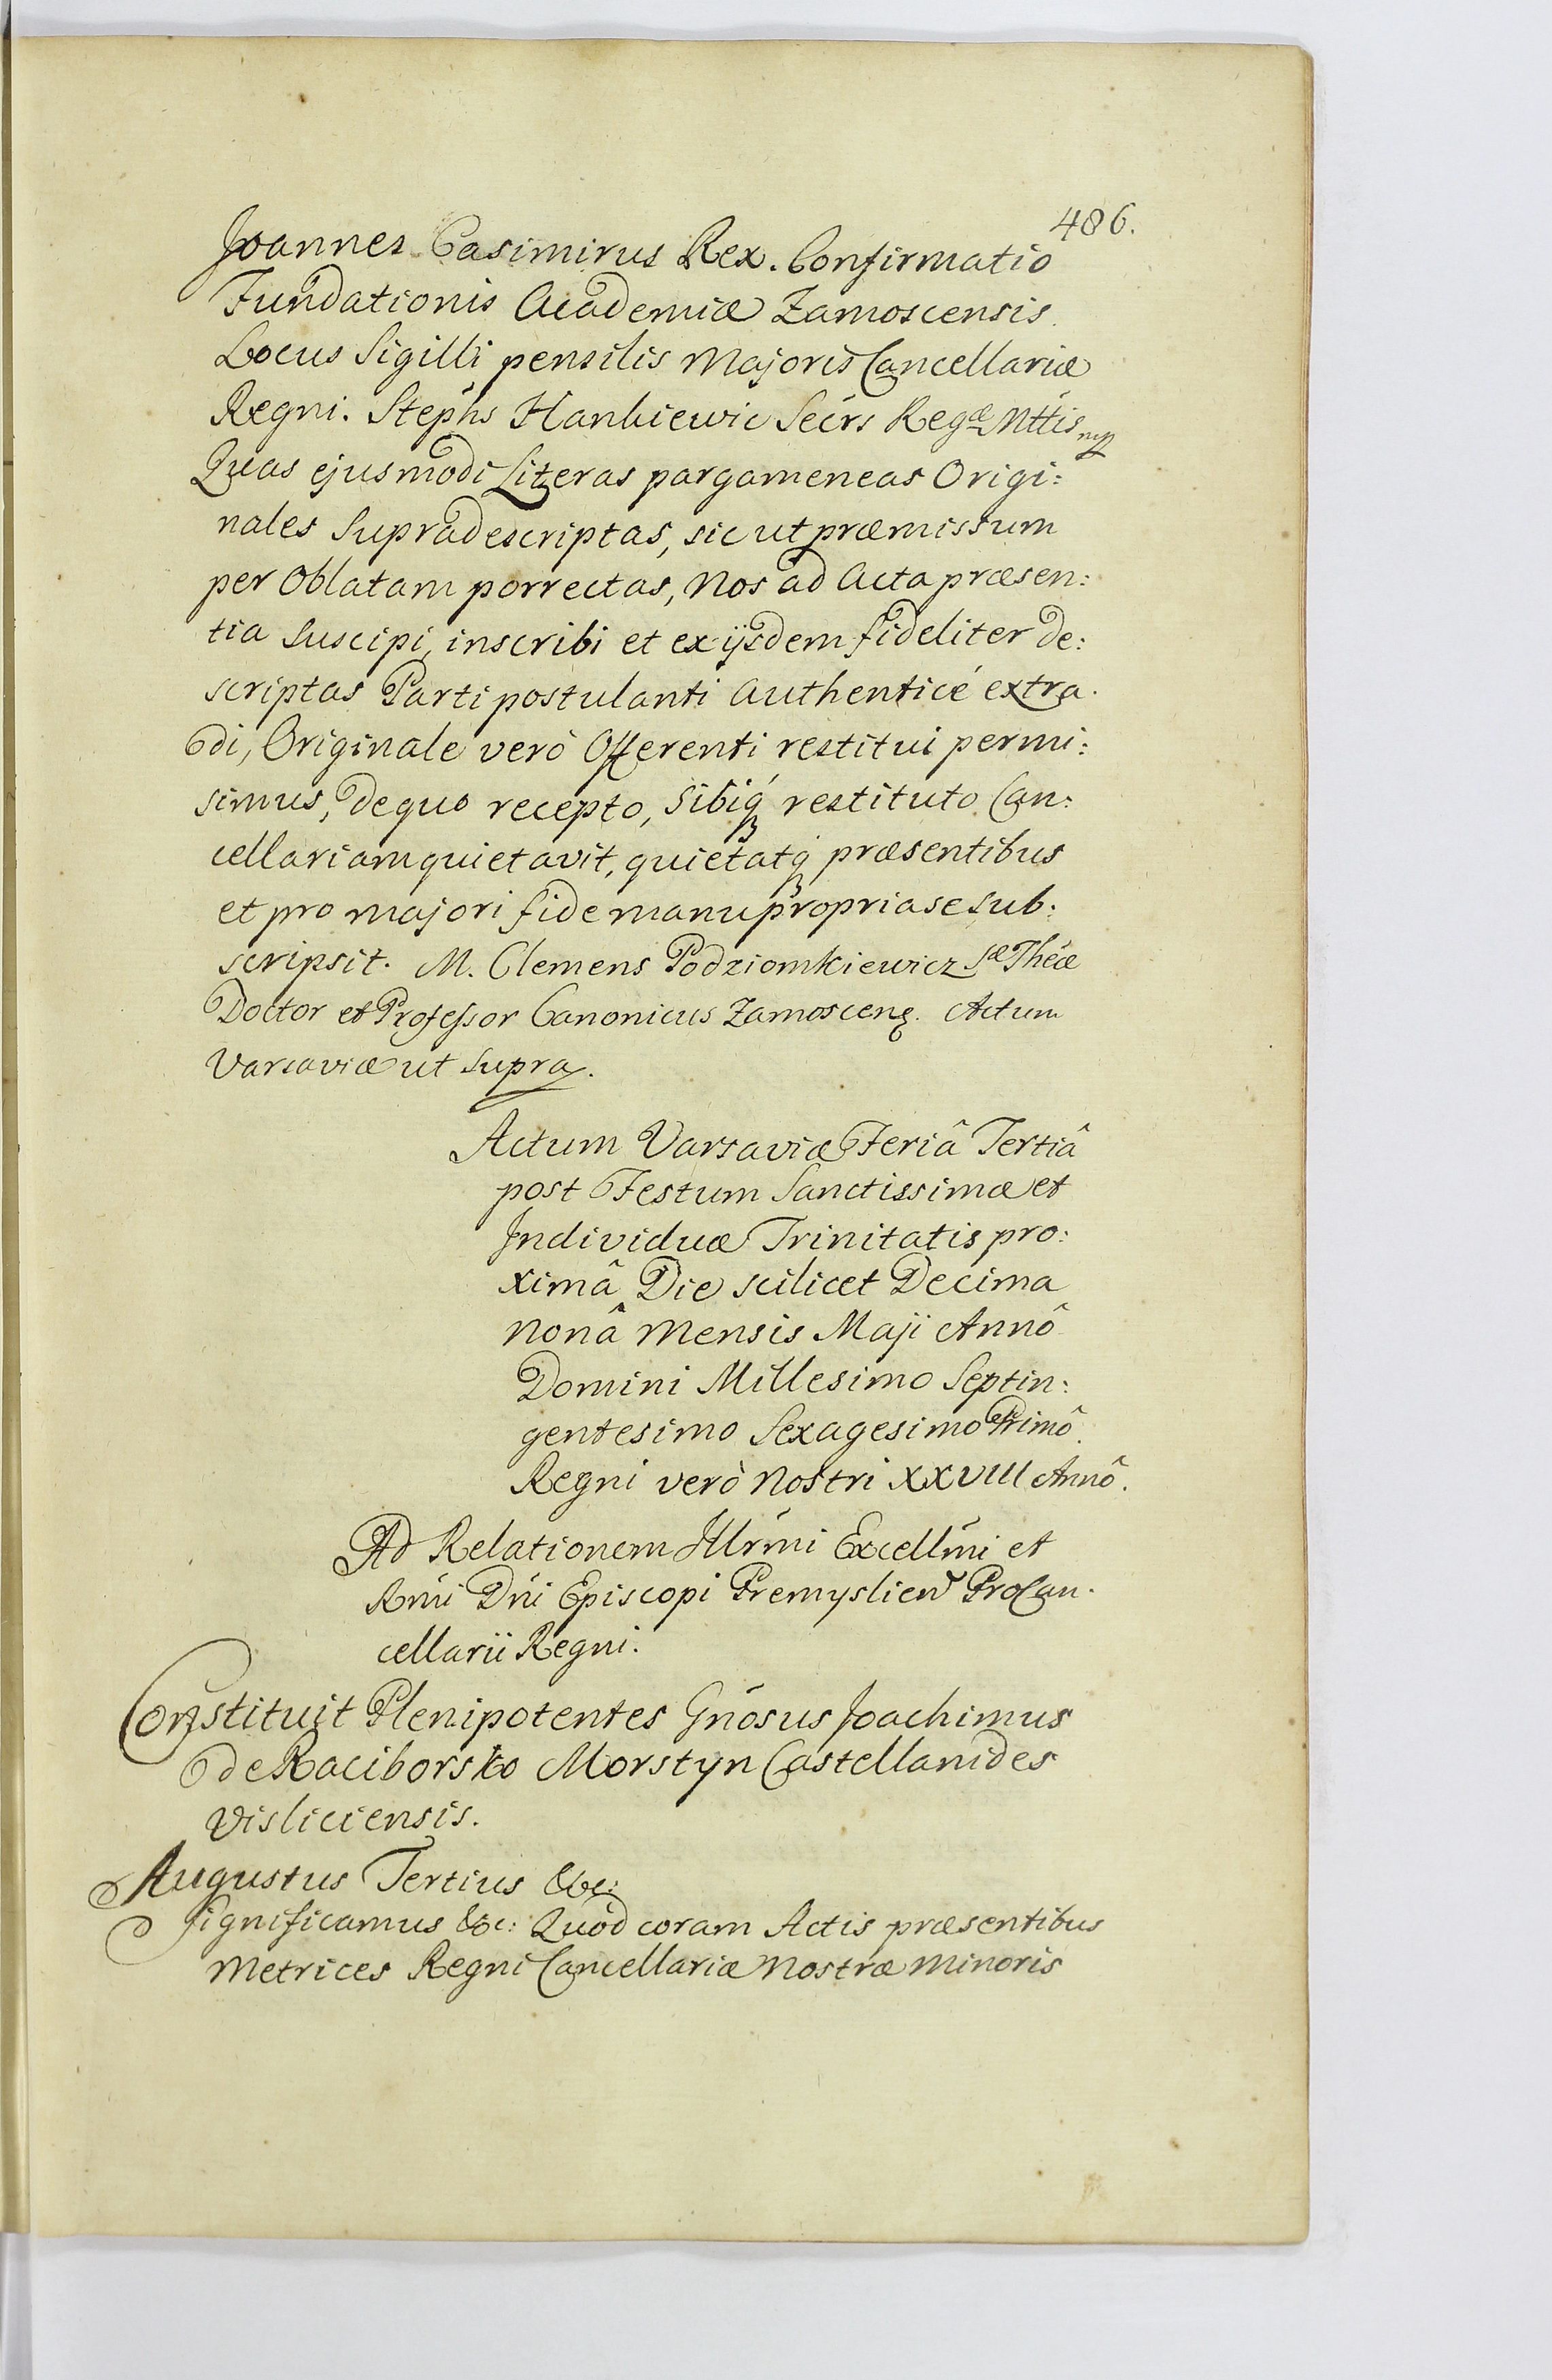 486.
Joannes Casimirus Rex. Confirmatio
Fundationis Academiæ Zamoscensis.
Locus Sigilli pensilis Majoris Cancellariæ
Regni. Stephs Hankiewic Secrs Regæ Mttis mp
Quas ejusmodi Literas pargameneas Origi:
nales supradescriptas, sicut præmissum
per Oblatam porrectas, Nos ad Acta præsen:
tia suscipi, inscribi et ex ijsdem fideliter de:
scriptas Parti postulanti authenticé extra.
di, Originale verò Offerenti restitui permi:
simus, de quo recepto, sibiq́ restituto Can:
cellariam quietavit, quietatq́ præsentibus
et pro majori fide manu propria se sub:
scripsit. M. Clemens Podziomkiewicz Sæ Theæ
Doctor et Professor Canonicus Zamoscenȩ. Actum
Varsaviæ ut supra.
Actum Varsaviæ Feriâ Tertiâ
post Festum Sanctissimæ et
Individuæ Trinitatis pro:
ximâ Die scilicet Decima
nonâ Mensis Maji Annô
Domini Millesimo Septin:
gentesimo Sexagesimo Primô.
Regni verò Nostri XXVIII Annô.
Ad Relationem Illrmi Excellmi et
Rmi Dni Episcopi Premyslien̄ ProCan.
cellarii Regni.
Constituit Plenipotentes Gnosus Joachimus
de Raciborsko Morstyn Castellanides
Visliciensis.
Augustus Tertius &c:
significamus &c: Quòd coram Actis præsentibus
Metrices Regni Cancellariæ Nostræ Minoris